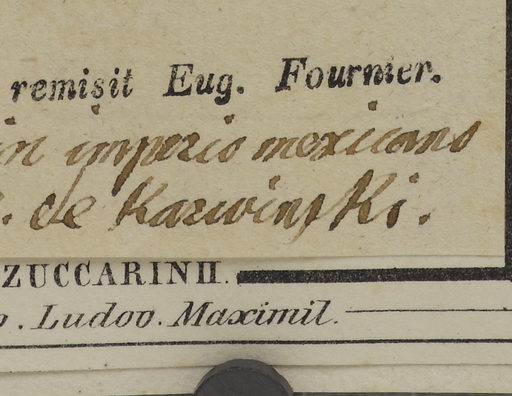 remisit Eug. Fournier.
in imperio mexicano
. de Karwinski.
ZUCCARINII.
. Ludov. Maximil.